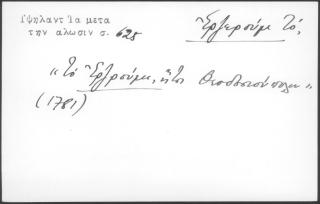 Ὑψηλαντ Τα μετα
την αλωσιν σ. 628
Ἐρζερούμ Τό,
"τὸ Ἐρζρούμ, ἤτοι Θεοδοσιούπολι"
(1781)